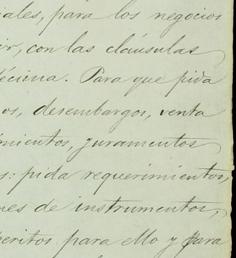 iales, para los negocios
ir, con las cláusulas
décima. Para que pida
os, desembargos, venta
imientos, juramentos
s: pida requerimientos,
nes de instrumentos,
peritos para ello y para